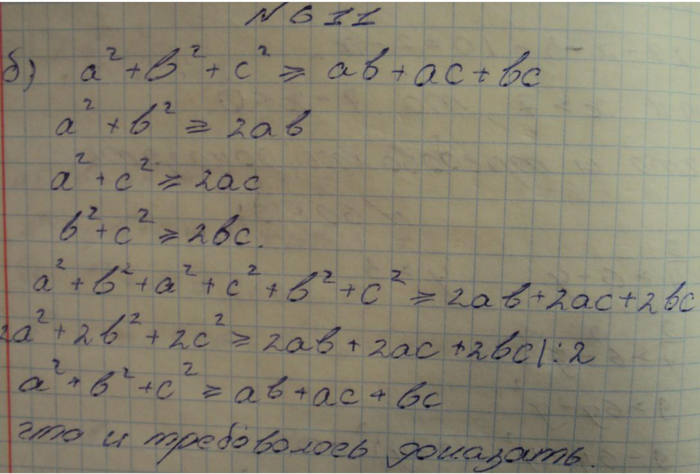 № 611
б) a² + b² + c² ⩾ ab + ac + bc
a² + b² ⩾ 2ab
a² + c² ⩾ 2ac
b² + c² ⩾ 2bc.
a² + b² + a² + c² + b² + c² ⩾ 2ab + 2ac + 2bc
2a² + 2b² + 2c² ⩾ 2ab + 2ac + 2bc | : 2
a² + b² + c² ⩾ ab + ac + bc
что и требоволось доказать.